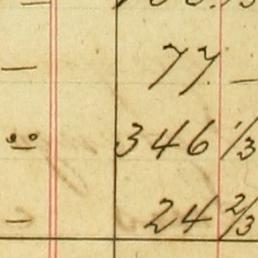 — 77 —
" 346 1/3
— 24 2/3